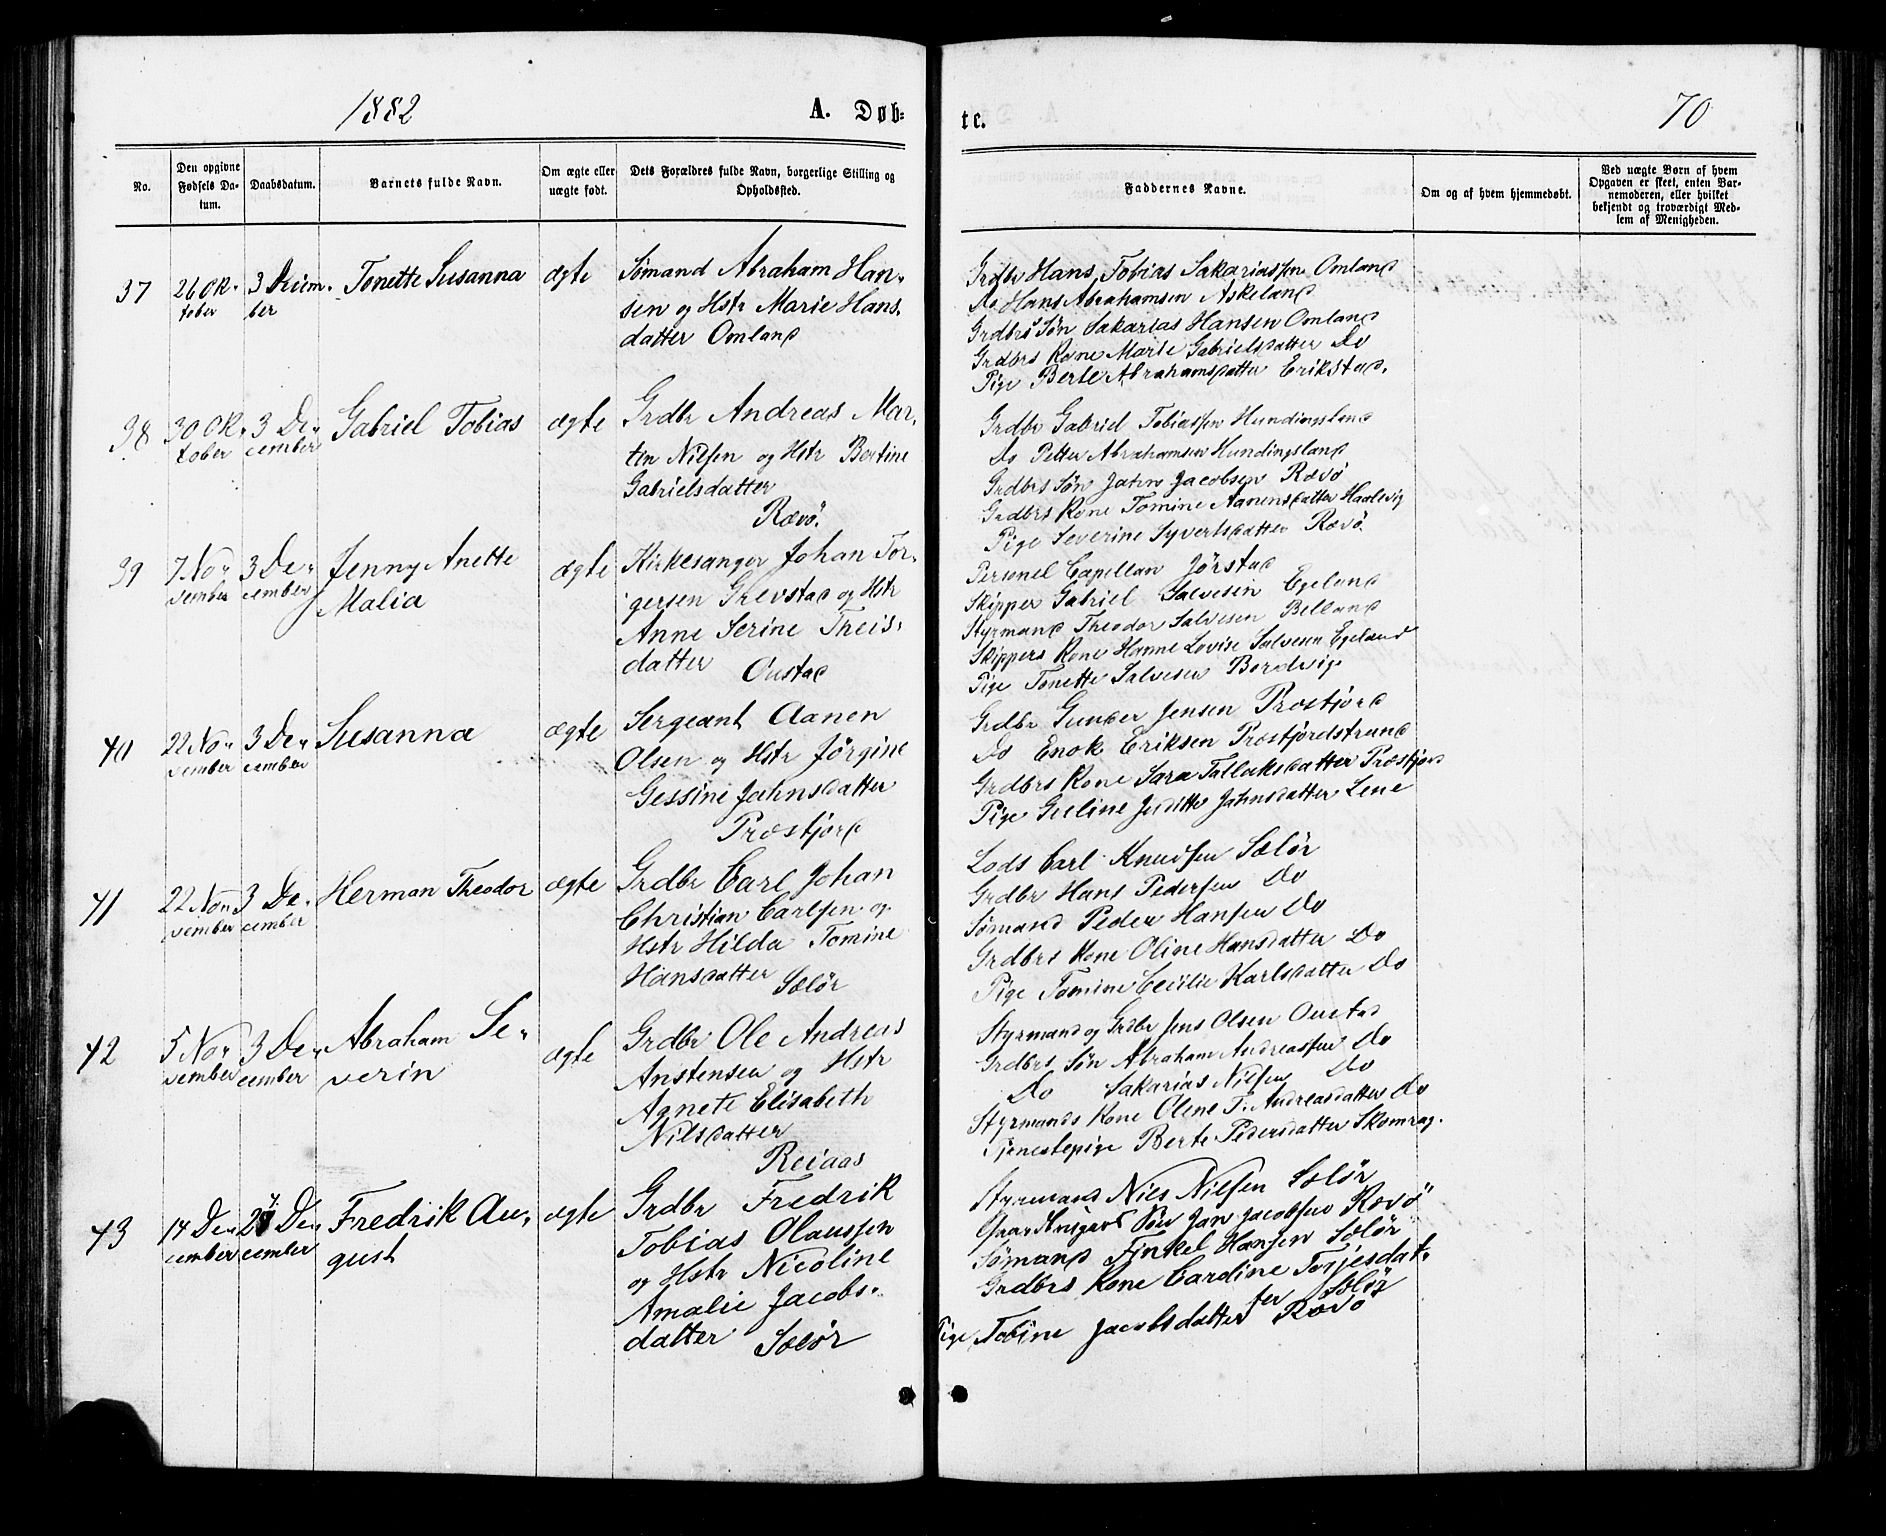 1882
A. Døb-
te.
70
No.
Den opgivne Fødsels Da-tum.
Daabsdatum.
Barnets fulde Navn.
Om ægte eller uægte født.
Dets Forældres fulde Navn, borgerlige Stilling og Opholdssted.
Faddernes Navne.
Om og af hvem hjemmedøbt.
Ved uægte Børn af hvem Opgaven er skeet, enten Bar-nemoderen, eller hvilket bekjendt og troværdigt Med-lem af Menigheden.
37
26 Ok-
tober
3 Decem-
ber
Tonette Susanna
ægte
Sømand Abraham Han-
sen og Hstr Marie Hans-
datter Omland
Grdbr Hans Tobias Sakariassen Omland
Do Hans Abrahamsen Askeland
Grdbrs Søn Sakarias Hansen Omland
Grdbrs Kone Marie Gabrielsdatter Do
Pige Berte Abrahamsdatter Erikstad.
38
30 Ok-
tober
3 De-
cember
Gabriel Tobias
ægte
Grdbr Andreas Mar-
tin Nilsen og Hstr Bertine
Gabrielsdatter
Rævø.
Grdbr Gabriel Tobiassen Hundingsland
Do Petter Abrahamsen Hundingsland
Grdbrs Søn Jahn Jacobsen Rævø
Grdbrs Kone Tomine Aanensdatter Haalevig
Pige Severine Syvertsdatter Rævø.
39
7 No-
vember
3 De-
cember
Jenny Anette
Malia
ægte
Kirkesanger Johan Tor-
gersen Grevstad og Hstr
Anne Serine Theis-
datter Oustad
Personel Capellan Jörstad
Skipper Gabriel Salvesen Egeland
Styrmand Theodor Salvesen Belland
Skippers Kone Hanne Lovise Salvesen Egeland
Pige Tonette Salvesen Bordvig
40
22 No-
vember
3 De-
cember
Susanna
ægte
Sergeant Aanen
Olsen og Hstr Jörgine
Gessine Jahnsdatter
Præstfjord
Grdbr Gunder Jensen Prostfjord
Do Enok Eriksen Prostfjordstrand
Grdbrs Kone Sara Tallaksdatter Præstfjord
Pige Guline Juditte Jahnsdatter Lene
41
22 No-
vember
3 De-
cember
Herman Theodor
ægte
Grdbr Carl Johan
Christian Carlsen og
Hstr Hilda Tomine
Hansdatter Sælör
Lods Carl Knudsen Sælör
Grdbr Hans Pedersen Do
Sømand Peder Hansen Do
Grdbrs Kone Oline Hansdatter Do
Pige Tomine Cecilie Karlsdatter Do
42
5 No-
vember
3 De-
cember
Abraham Se-
verin
ægte
Grdbr Ole Andreas
Anstensen og Hstr
Agnete Elisabeth
Nilsdatter
Reiaas
Styrmand og Grdbr Jens Olsen Oustad
Grdbrs Søn Abraham Andreassen Do
Do Sakarias Nilsen Do
Styrmands Kone Olene T. Andreasdatter Do
Tjenestepige Berte Pedersdatter Skomrag.
43
14 De-
cember
27 De-
cember
Fredrik Au-
gust
ægte
Grdbr Fredrik
Tobias Olaussen
og Hstr Nicoline
Amalie Jacobs-
datter Sælör
Styrmand Nils Nilsen Sælör
Søn Jan Jacobsen Rævø
Sømand Tjnkel Hansen Sælör
Grdbrs Kone Cardine Torjesdat-
ter Sælör
Pige Tobine Jacobsdatter Rævø